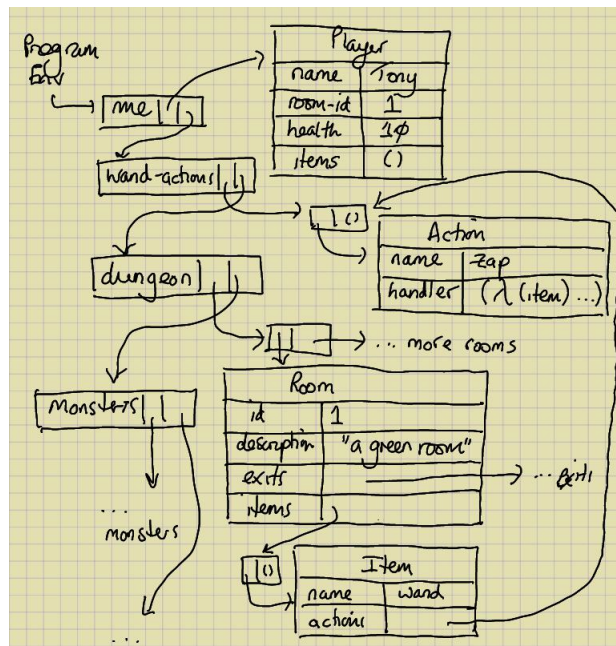 Program
Env
me
Player
name Tony
room-id 1
health 10
items ()
wand-actions
()
Action
name zap
handler (λ (item) ...)
dungeon
... more rooms
Room
id 1
description "a green room"
exits
... exits
items
monsters
...
monsters
...
()
Item
name wand
actions